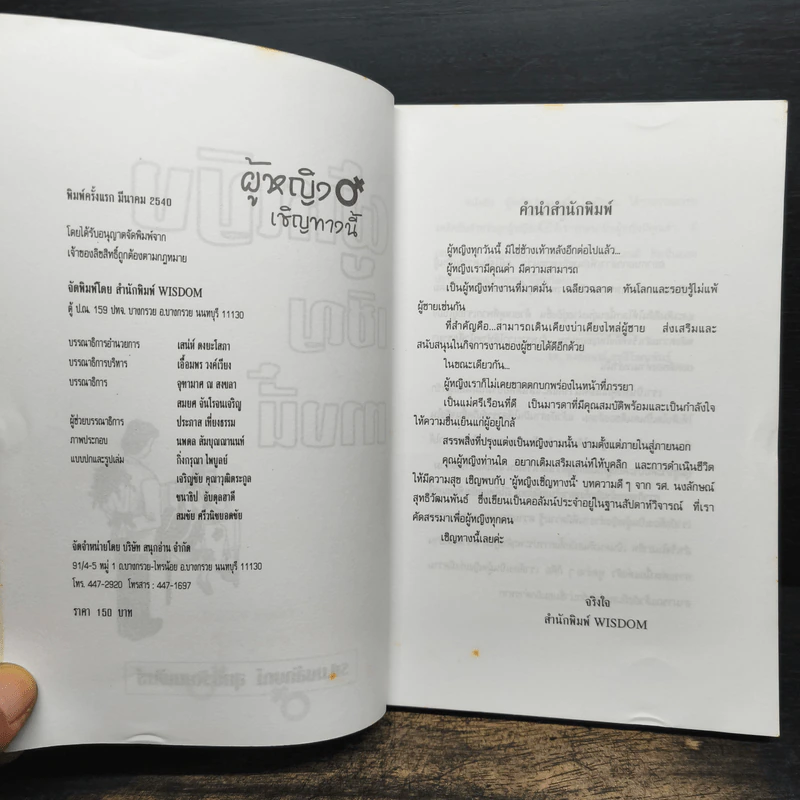 ผู้หญิง
เชิญทางนี้
พิมพ์ครั้งแรก มีนาคม 2540
โดยได้รับอนุญาตจัดพิมพ์จาก
เจ้าของลิขสิทธิ์ถูกต้องตามกฎหมาย
จัดพิมพ์โดย สำนักพิมพ์ WISDOM
ตู้ ป.ณ. 159 ปทจ. บางกรวย อ.บางกรวย นนทบุรี 11130
บรรณาธิการอำนวยการ เสน่ห์ ดงยะโสภา
บรรณาธิการบริหาร เอื้อมพร วงค์เวียง
บรรณาธิการ จุฑามาศ ณ สงขลา
สมยศ จันโรจนเจริญ
ผู้ช่วยบรรณาธิการ ประภาส เที่ยงธรรม
ภาพประกอบ นพดล สัมบุณณานนท์
แบบปกและรูปเล่ม กิ่งกรุณา ไพบูลย์
เจริญชัย คุณาวุฒิตระกูล
ชนาธิป อับดุลฮาดี
สมชัย ศรีวนิชยอดชัย
จัดจำหน่ายโดย บริษัท สนุกอ่าน จำกัด
91/4-5 หมู่ 1 ถ.บางกรวย-ไทรน้อย อ.บางกรวย นนทบุรี 11130
โทร. 447-2920 โทรสาร : 447-1697
ราคา 150 บาท
คำนำสำนักพิมพ์
ผู้หญิงทุกวันนี้ มิใช่ช้างเท้าหลังอีกต่อไปแล้ว...
ผู้หญิงเรามีคุณค่า มีความสามารถ
เป็นผู้หญิงทำงานที่มาดมั่น เฉลียวฉลาด ทันโลกและรอบรู้ไม่แพ้
ผู้ชายเช่นกัน
ที่สำคัญคือ...สามารถเดินเคียงบ่าเคียงไหล่ผู้ชาย ส่งเสริมและ
สนับสนุนในกิจการงานของผู้ชายได้ดีอีกด้วย
ในขณะเดียวกัน...
ผู้หญิงเราก็ไม่เคยขาดตกบกพร่องในหน้าที่ภรรยา
เป็นแม่ศรีเรือนที่ดี เป็นมารดาที่มีคุณสมบัติพร้อมและเป็นกำลังใจ
ให้ความชื่นเย็นแก่ผู้อยู่ใกล้
สรรพสิ่งที่ปรุงแต่งเป็นหญิงงามนั้น งามตั้งแต่ภายในสู่ภายนอก
คุณผู้หญิงท่านใด อยากเติมเสริมเสน่ห์ให้บุคลิก และการดำเนินชีวิต
ให้มีความสุข เชิญพบกับ "ผู้หญิงเชิญทางนี้" บทความดี ๆ จาก รศ. นงลักษณ์
สุทธิวัฒนพันธ์ ซึ่งเขียนเป็นคอลัมน์ประจำอยู่ในฐานสัปดาห์วิจารณ์ ที่เรา
คัดสรรมาเพื่อผู้หญิงทุกคน
เชิญทางนี้เลยค่ะ
จริงใจ
สำนักพิมพ์ WISDOM